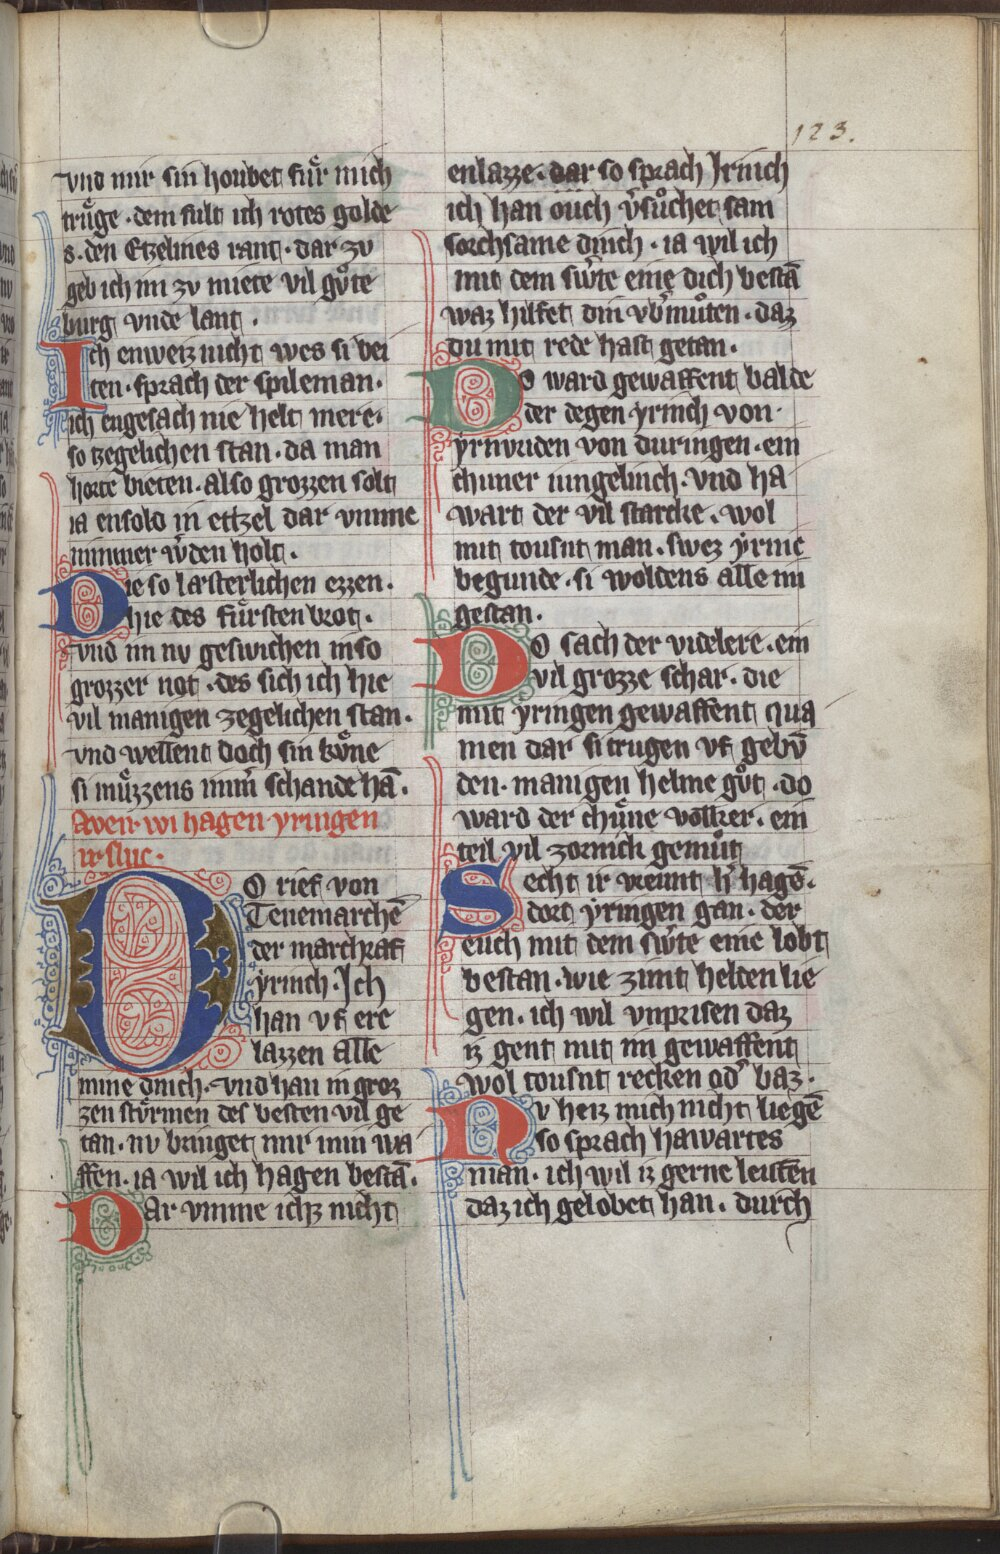 123.
vnd mir sin houbet fuͤr mich
truͤge · dem fult ich rotes golde
s · den Etzelines rant · dar zv
geb ich im zv miete vil guͦte
burg vnde lant ·
Ich enweiz nicht wes si bei
ten · sprach der spileman ·
ich engesach nie helt mere ·
so zegelichen stan · da man
horte bieten · also grozzen solt
ia ensold in ettzel dar vmme
nimmer w̄den holt ·
Die so lasterlichen ezzen ·
hie des fuͤrsten brot ·
vnd im nv geswichen in so
grozzer not · des sich ich hie
vil manigen zegelichen stan ·
vnd wellent doch sin kuͤne
si muͤzzens im̄ schande hā ·
Aven · wi hagen yringen
ir sluc ·
DO rief von
Tenemarchē
der marchraf
yrinch · Ich
han vf ere
lazzen alle
mine dinch · vnd han in groz
zen stuͤrmen des besten vil ge
tan · nv bringet mir min wa
ffen · ia wil ich hagen bestā ·
Dar vmme ichz nicht
enlazze · dar so sprach Irinch
ich han ouch v̄suͦchet sam
sorchsame dinch · ia wil ich
mit dem sw̄te eine dich bestā
waz hilfet din vb̄muͦten · daz
du mit rede hast getan ·
DO ward gewaffent balde
der degen yrinch von ·
yrnvriden von duringen · ein
chuner iungelinch · vnd ha
wart der vil starcke · wol
mit tousnt man · swez yrinc
begunde · si woldens alle im
gestan ·
DO sach der videlere · ein
vil grozze schar · die
mit yringen gewaffent qua
men dar si trugen vf gebū
den · manigen helme guͦt · do
ward der chuͤne volker · ein
teil vil zornich gemuͦt
Secht ir vreunt h̄ hagē ·
dort yringen gan · der
euch mit dem sw̄te eine lobt
bestan · wie zimt helden lie
gen · ich wil vnprisen daz
iz gent mit im gewaffent
wol tousnt recken od̄ baz ·
Nv heiz mich nicht liegē
so sprach hawartes
man · ich wil iz gerne leustēn
daz ich gelobet han · durch